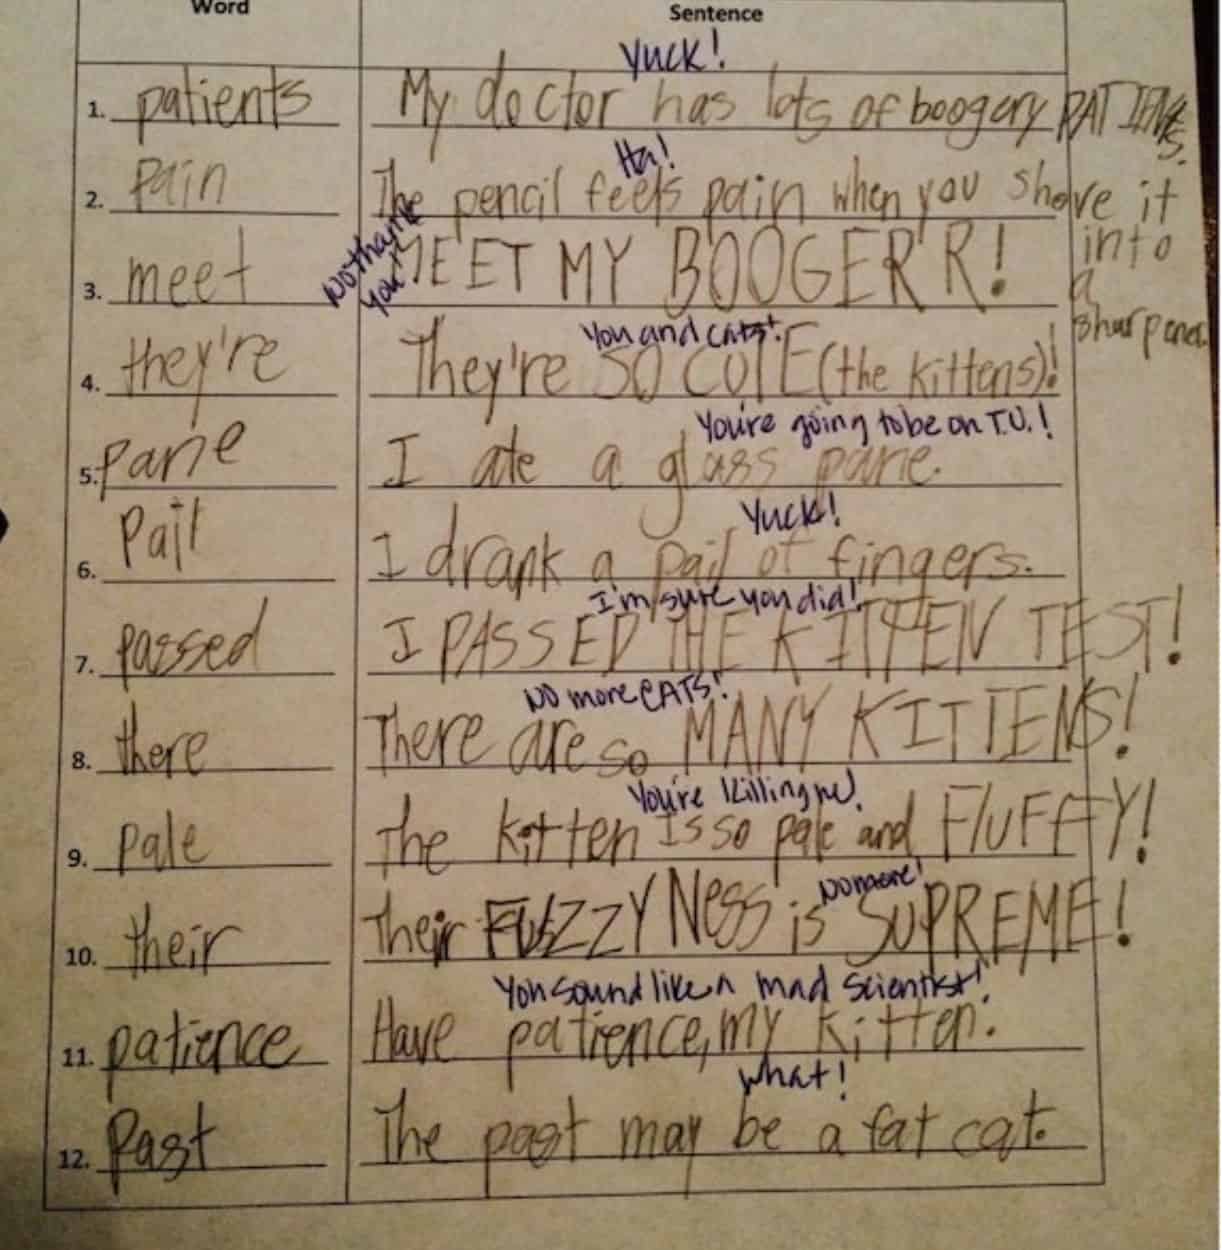 Word Sentence
Yuck!
1. patients My doctor has lots of boogery PATIENTS.
Ha!
2. Pain The pencil feels pain when you shove it into a sharpener.
No thank you
3. meet MEET MY BOOGERR!
You and cats!
4. they're They're SO CUTE (the kittens)!
You're going to be on T.V.!
5. pane I ate a glass pane.
Yuck!
6. Pail I drank a pail of fingers.
I'm sure you did!
7. passed I PASSED THE KITTEN TEST!
NO more CATS!
8. there There are so MANY KITTENS!
You're killing me!
9. pale The kitten Is so pale and FlUFFY!
No more!
10. their Their FUZZYNess is SUPREME!
You sound like a mad scientist!
11. patience Have patience, my kitten.
What!
12. Past The past may be a fat cat.